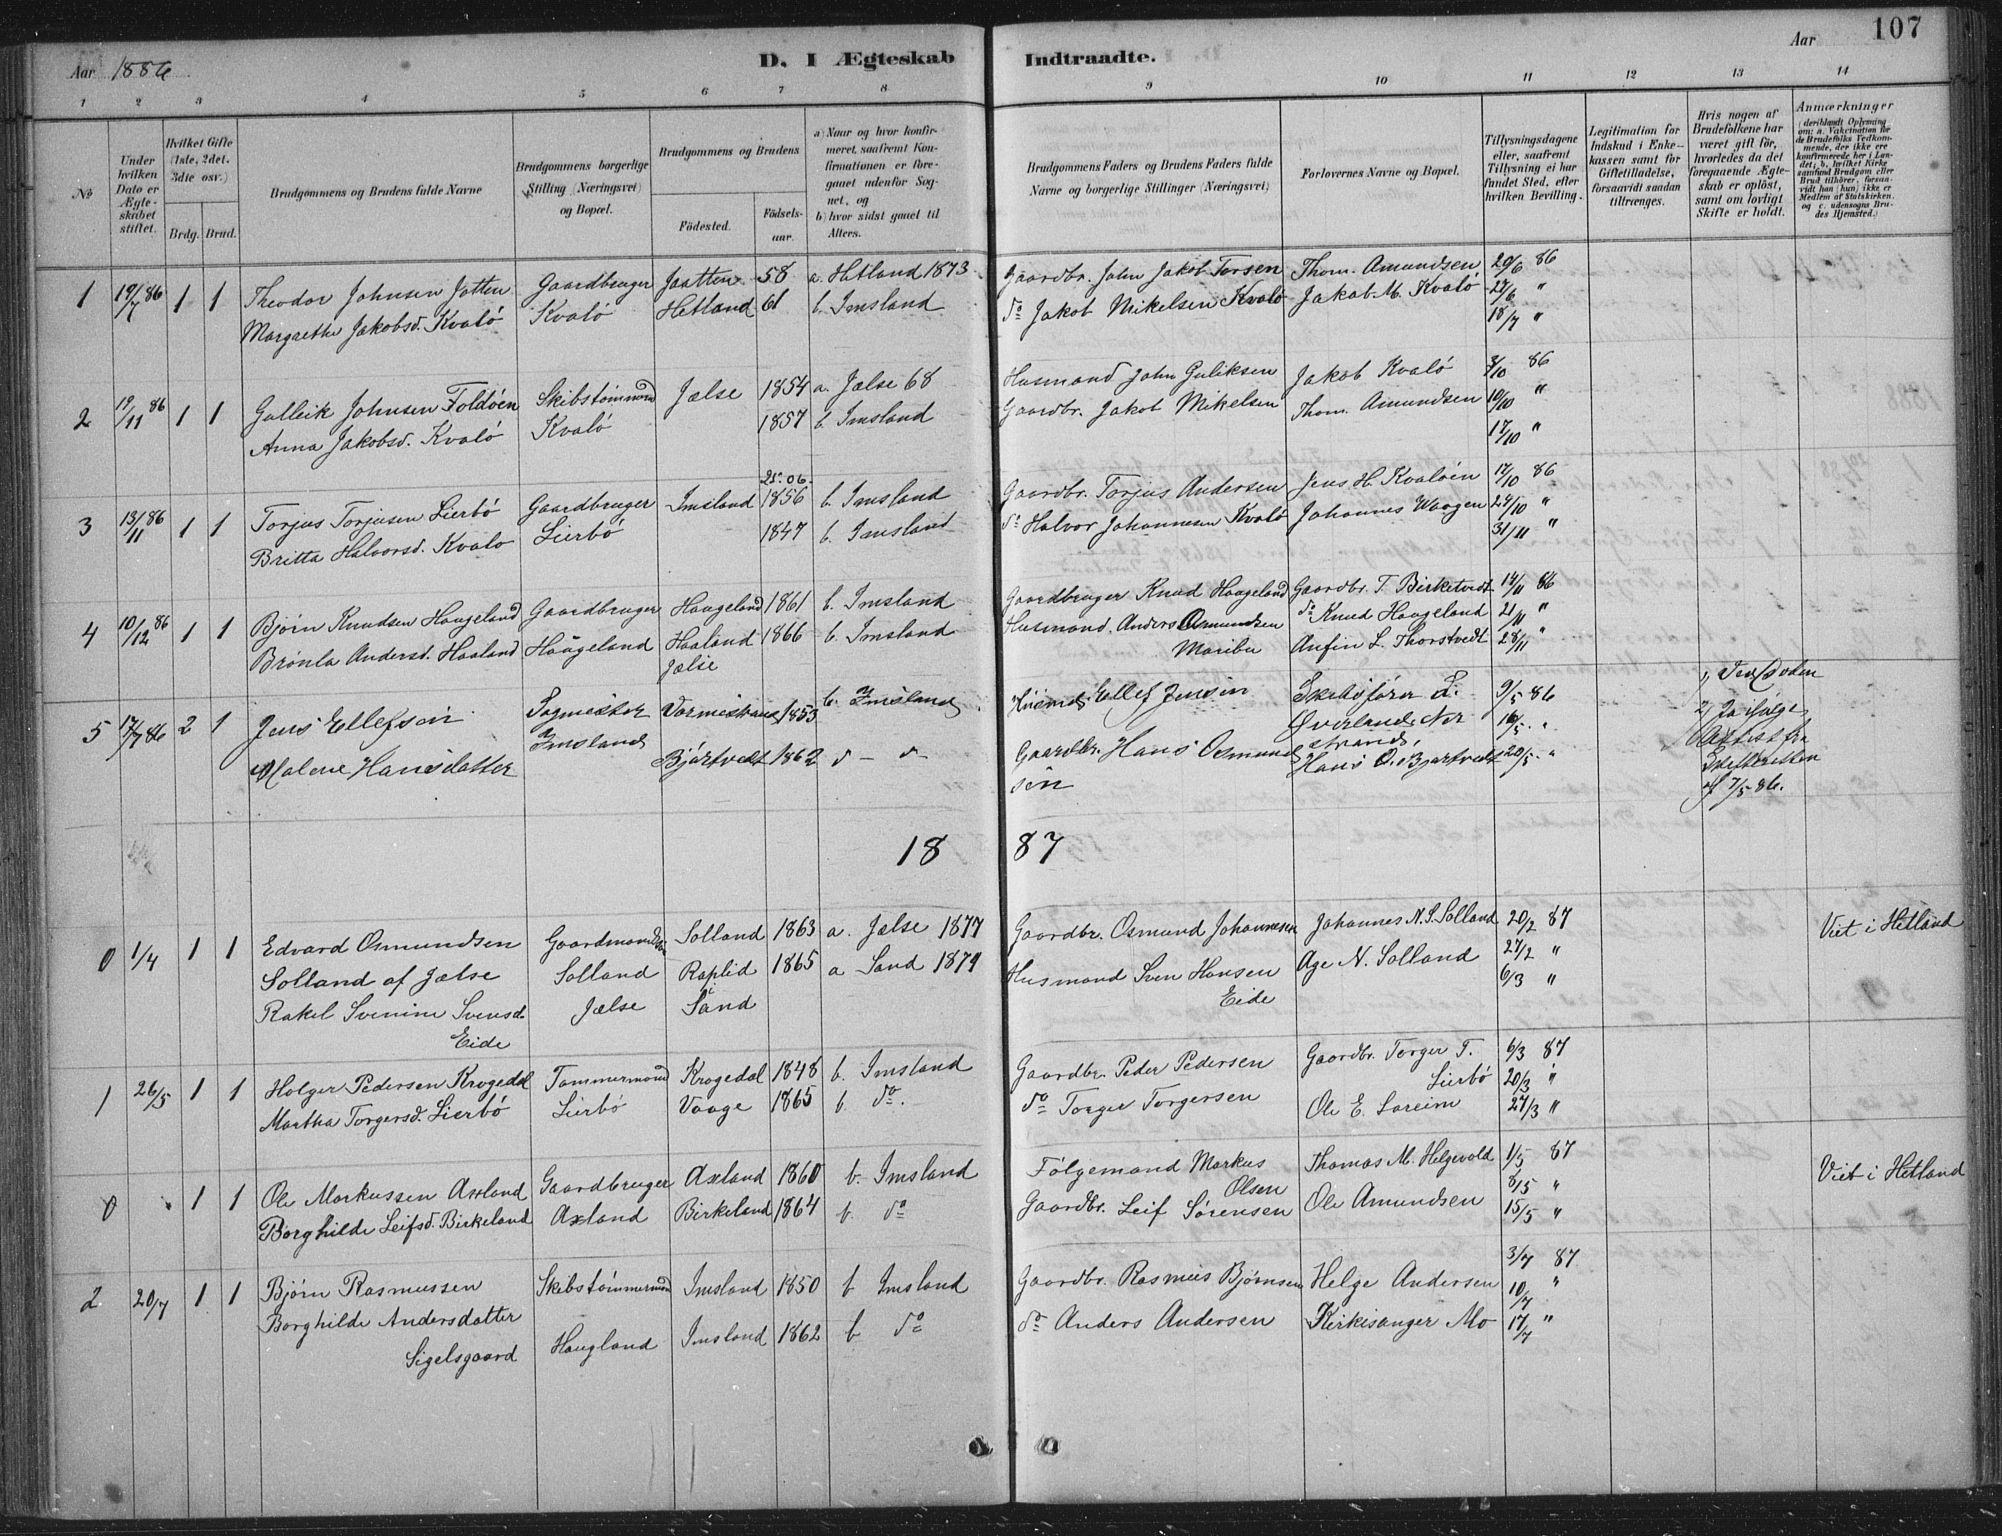 Aar 1886
D. I Ægteskab Indtraadte.
Aar
107
1 2 3 4 5 6 7 8 9 10 11 12 13 14
No
Under hvilken Dato er Ægteskabet stiftet.
Hvilket Gifte (1ste, 2det. 3die osv.)
Brdg. Brud.
Brudgommens og Brudens fulde Navne
Brudgommens borgerlige Stilling (Næringsvei) og Bopæl.
Brudgommens og Brudens
Fødested.
Fødselsaar.
a) Naar og hvor konfirmeret, saafremt Konfirmationen er foregaaet udenfor Sognet, og
b) hvor sidst gaaet til Alters.
Brudgommens Faders og Brudens Faders fulde Navne og borgerlige Stillinger (Næringsvei)
Forlovernes Navne og Bopæl.
Tillysningsdagene eller, saafremt Tillysning ei har fundet Sted, efter hvilken Bevilling.
Legitimation for Indskud i Enkekassen samt for Giftetilladelse, forsaavidt saadan tiltrænges.
Hvis nogen af Brudefolkene har været gift før, hvorledes da det foregaaende Ægteskab er opløst, samt om lovligt Skifte er holdt.
Anmærkninger (deriblandt Oplysning om: a. Vakcination for de Brudefolks Vedkommende, der ikke ere konfirmerede her i Landet; b. hvilket Kirkesamfund Brudgom eller Brud tilhører, forsaavidt han (hun) ikke er Medlem af Statskirken. og c. udensogns Brudes Hjemsted.)
1 19/7 86 1 1 Theodor Johnsen Jatten Gaardbruger Jaatten 58 a. Hetland 1873 Gaardbr. John Jakob Torsen Thom. Amundsen 20/6 86
Margrethe Jakobsd. Kvalö Kvalö Hetland 61 b. Imsland do Jakob Mikelsen Kvalö Jakob M. Kvalö 27/6 "
18/7 "
2 19/11 86 1 1 Gulleik Johnsen Foldöen Skibstömmermd Jælse 1854 a. Jælse 68 Husmand John Guliksen Jakob Kvalö 3/10 86
Anna Jakobsd. Kvalö Kvalö 1857 b. Imsland Gaardbr. Jakob Mikelsen Thom. Amundsen 10/10 "
17/10 "
3 13/11 86 1 1 Torjus Torjusen Lierbö Gaardbruger Imsland 25.06. 1856 b. Imsland Gaardbr. Torjus Andersen Jens H. Kvalöen 17/10 86
Britta Halvorsd. Kvalo Lierbö 1847 b. Imsland do Halvor Johannesen Kvalö Johannes Waagen 24/10 "
31/11 "
4 10/12 86 1 1 Bjørn Knudsen Haugeland Gaardbruger Haugeland 1861 b. Imsland Gaardbruger Knud Haugeland Gaardbr. T. Birketvedt 14/11 86
Brönla Andersd. Haaland Haugeland Haaland Jælse 1866 b. Imsland Husmand. Anders Osmundsen Maribu do Knud Haugeland 21/11 "
Anfin L. Thorstvedt 28/11 "
5 17/7 86 2 1 Jens Ellefsen Imsland 1853 b. Imsland Husmd. Ellef Jensen 9/5 86
Malene Hansdatter Bjørtvedt 1862 d – d – Gaardbr. Hans Osmundsen Øverland, Nerstrand, 16/5 "
Hans O. Bjørtvedt 20/5 "
1) Ved Døden
2) Ifølge Attest fra Skifteretten af 7/5 86.
1887
0 1/4 1 1 Edvard Osmundsen Gaardmandssøn Solland 1863 a. Jælse 1877 Gaardbr. Osmund Johannesen Johannes N. S. Solland 20/2 87 Viet i Hetland
Solland af Jælse Solland Raplid 1865 a Sand 1879 Husmand Sven Hansen Eide Age N. Solland 27/2 "
Rakel Svenine Svensd. Eide Jælse i Sand 6/3 "
1 26/5 1 1 Holger Pedersen Krogedal Tømmermand Krogedal 1848 b. Imsland Gaardbr. Peder Pedersen Gaardbr. Torger T. Lierbö 6/3 87
Martha Torgersd. Lierbö Lierbö Vaage 1865 b. do. do Torger Torgersen Ole E. Sareim 20/3 "
27/3 "
0 1 1 Ole Markussen Axland Gaardbruger Axland 1860 b. Imsland Følgemand Markus Olsen Thomas M. Helgevold 1/5 87 Viet i Hetland
Borghilde Leifsd. Birkeland Axland Birkeland 1864 b. do Gaardbr. Leif Sørensen Ole Amundsen 8/5 "
15/5 "
2 20/7 1 1 Bjørn Rasmussen Skibstømmermd Imsland 1850 b Imsland Gaardbr. Rasmus Bjørnsen Helge Andersen 3/7 87
Borghilde Andersdatter Sigelsgaard Haugland Imsland 1862 b do do Anders Andersen Kirkesanger Mo 10/7 "
17/7 "